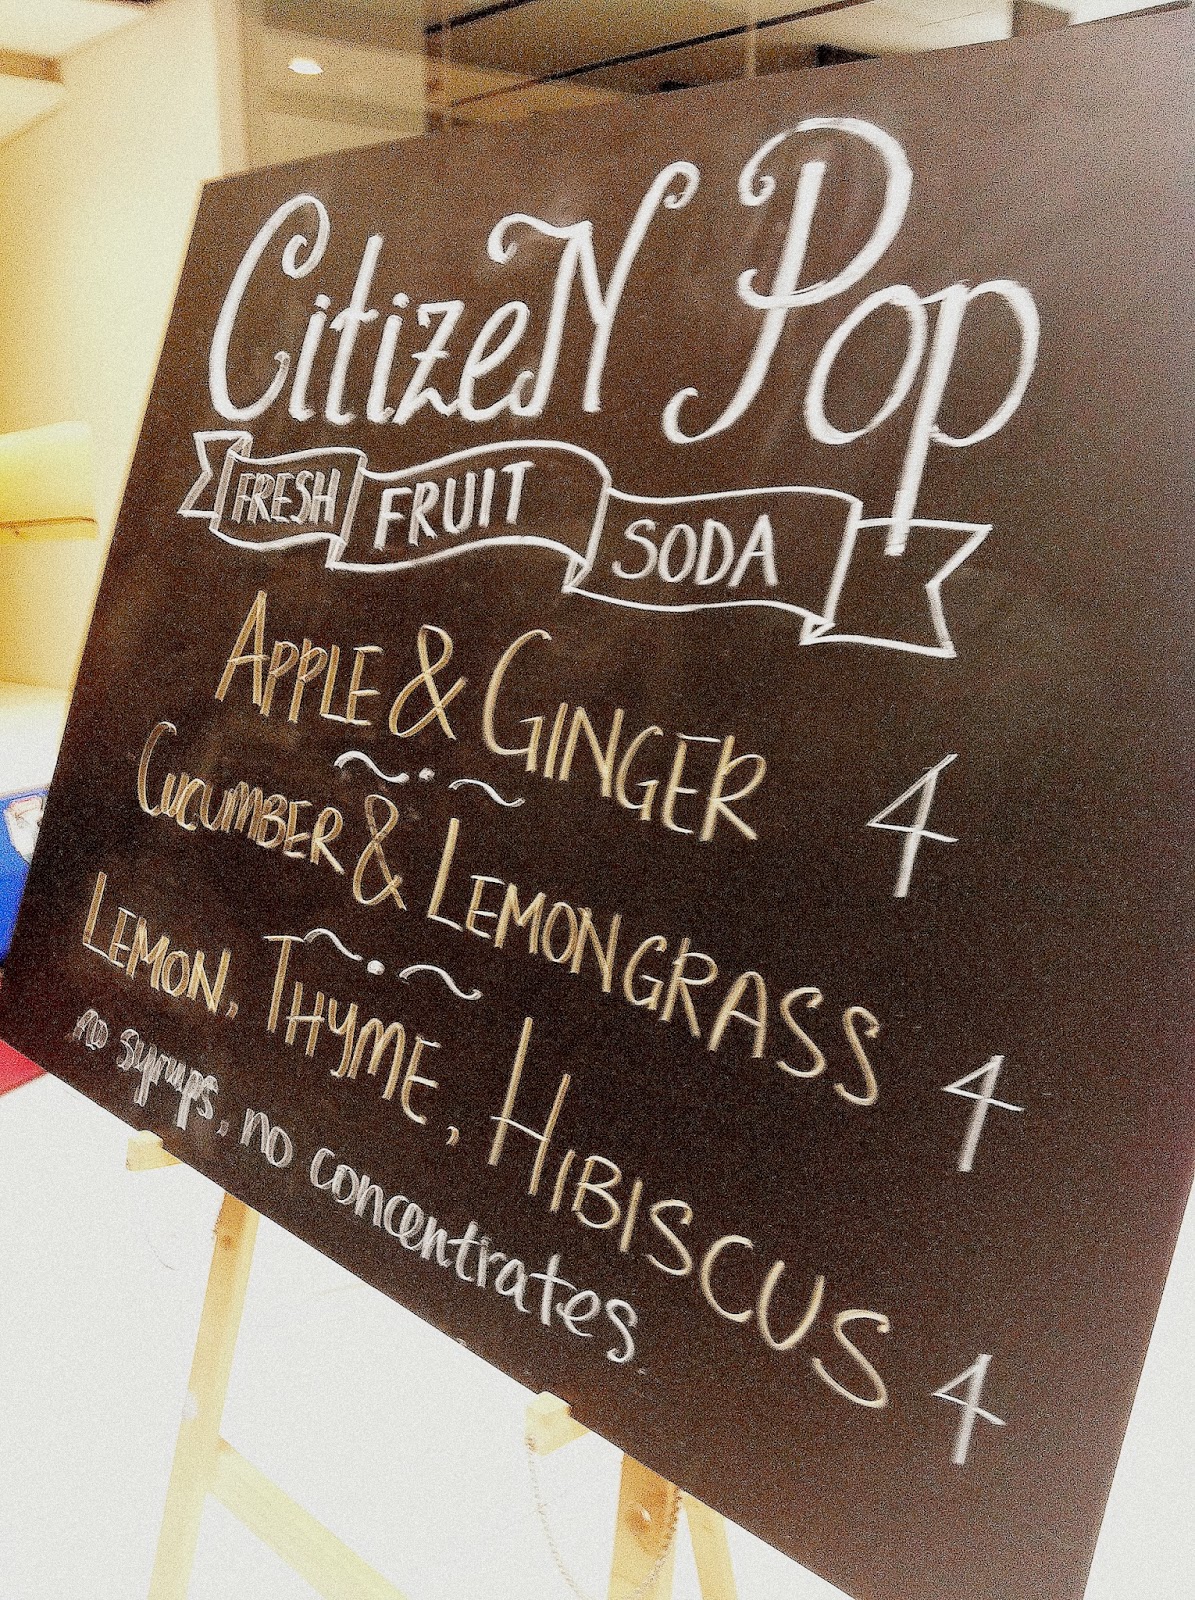 CitizeN Pop
FRESH FRUIT SODA
APPLE & GINGER 4
CUCUMBER & LEMONGRASS 4
LEMON, THYME, HIBISCUS 4
no syrups, no concentrates.